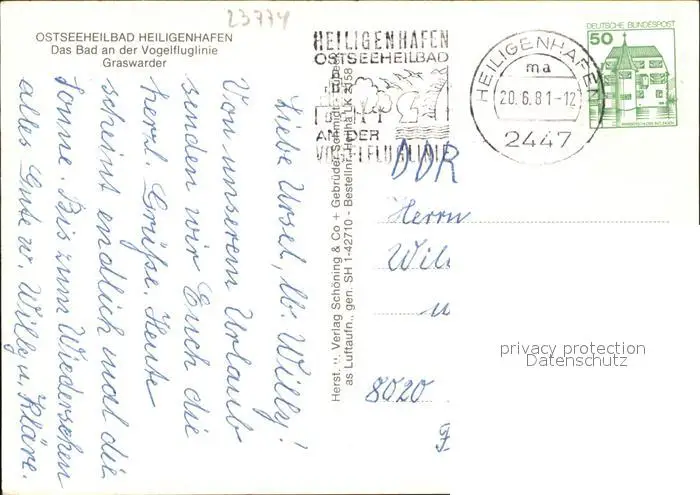 23774
OSTSEEHEILBAD HEILIGENHAFEN
Das Bad an der Vogelfluglinie
Graswarder
Liebe Ursel, lb. Willy!
Von unserem Urlaub
senden wir Euch die
herzl. Grüße. Heute
scheint endlich mal die
Sonne. Bis zum Wiedersehen
alles Gute w. Willy u. Kläre.
Herst. u. Verlag Schöning & Co + Gebrüder Schmidt
as Luftaufn., gen. SH 1-42710 - Bestellnr. Heilha LK
HEILIGENHAFEN
OSTSEEHEILBAD
AN DER
VOGELFLUGLINIE
HEILIGENHAFEN
ma
20.6.81-12
2447
DEUTSCHE BUNDESPOST
50
DDR
Herrn
Wil
u
8020
privacy protection
Datenschutz